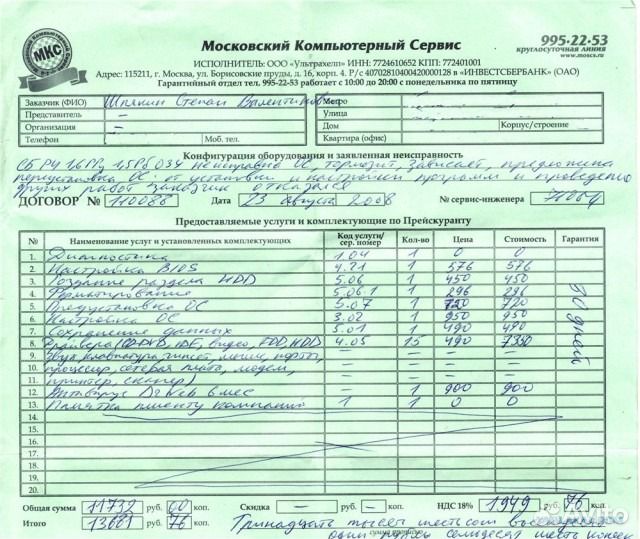 МКС
Московский Компьютерный Сервис
995-22-53
круглосуточная линия
www.moscs.ru
ИСПОЛНИТЕЛЬ: ООО «Ультрахелп» ИНН: 7724610652 КПП: 772401001
Адрес: 115211, г. Москва, ул. Борисовские пруды, д. 16, корп. 4. Р/с 40702810400420000128 в «ИНВЕСТСБЕРБАНК» (ОАО)
Гарантийный отдел тел. 995-22-53 работает с 10:00 до 20:00 с понедельника по пятницу
Заказчик (ФИО) Степан Валентинович
Представитель –
Организация –
Телефон Моб. тел.
Метро
Улица
Дом Корпус/строение
Квартира (офис)
Конфигурация оборудования и заявленная неисправность
неисправна ОС, тормозит, зависает, предложена
переустановка ОС. от установки и настройки программ и проведению
других работ заказчик отказался
ДОГОВОР № 110088 Дата 23 августа 2008 № сервис-инженера
Предоставляемые услуги и комплектующие по Прейскуранту
№ Наименование услуг и установленных комплектующих Код услуги/сер. номер Кол-во Цена Стоимость Гарантия
1. Диагностика 1.04 1 0 0
2. Настройка BIOS 4.21 1 576 576
3. Создание раздела HDD 5.06 1 450 450
4. Форматирование 5.06.1 1 296 296
5. Предустановка ОС 5.07 1 720 720
6. Настройка ОС 3.02 1 950 950
7. Сохранение данных 5.01 1 490 490
8. Драйвера 4.05 15 490 7350
9. Звук, клавиатура, мышь, порты,
10. процессор, сетевая плата, модем,
11. принтер, сканер)
12. Антивирус DrWeb 6 мес – 1 900 900
13. Памятка клиенту компании 1 1 0 0
30 дней
14.
15.
16.
17.
18.
19.
20.
Общая сумма 11732 руб. 00 коп. Скидка – руб. – коп. НДС 18% 1949 руб. 76 коп.
Итого 13681 руб. 76 коп. Тринадцать тысяч шестьсот восемьдесят
один рубль семьдесят шесть копеек
Avito